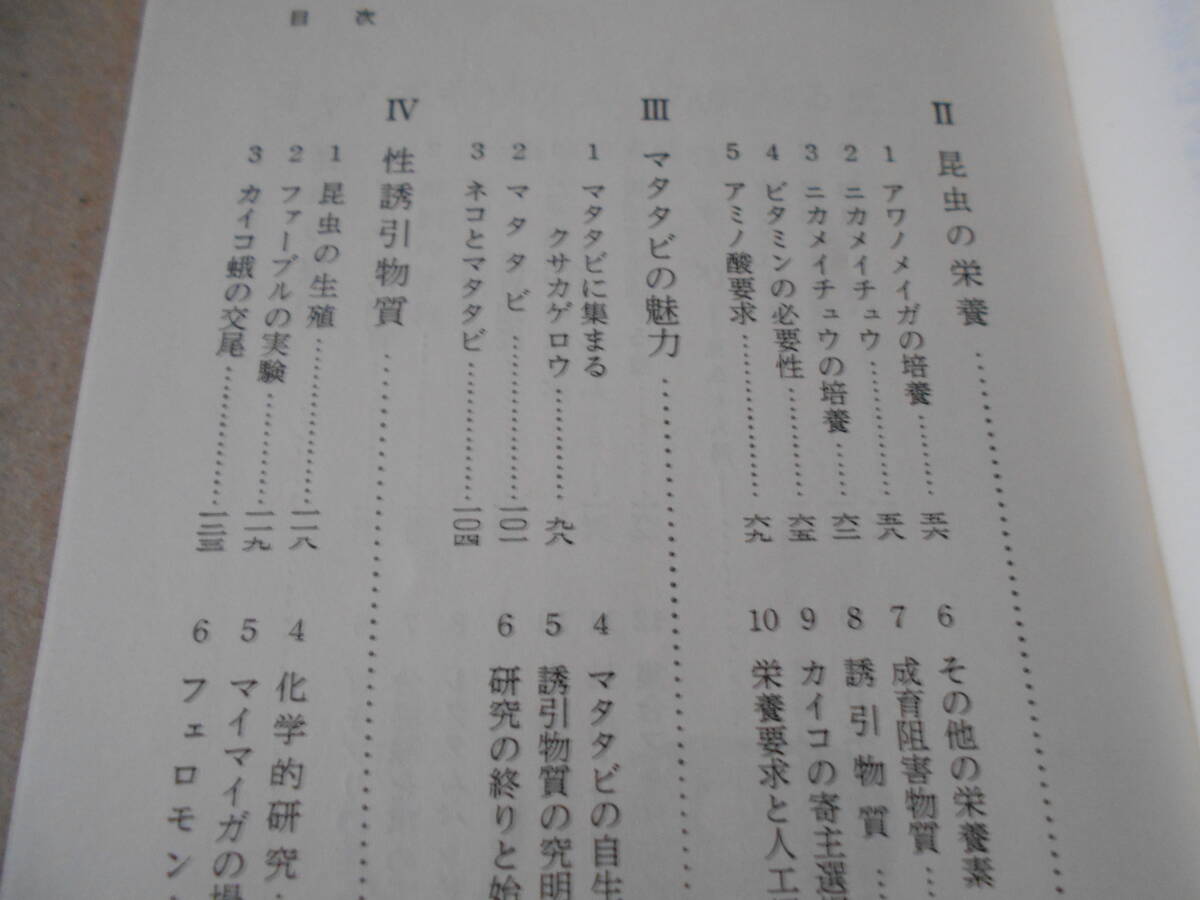 目次
II 昆虫の栄養
1 アワノメイガの培養 五六
2 ニカメイチュウ 五八
3 ニカメイチュウの培養 六二
4 ビタミンの必要性 六五
5 アミノ酸要求 六九
6 その他の栄養素
7 成育阻害物質
8 誘引物質
9 カイコの寄主選
10 栄養要求と人工
III マタタビの魅力
1 マタタビに集まる
クサカゲロウ 九八
2 マタタビ 一〇二
3 ネコとマタタビ 一〇四
4 マタタビの自生
5 誘引物質の究明
6 研究の終りと始
IV 性誘引物質
1 昆虫の生殖 一一八
2 ファーブルの実験 一一九
3 カイコ蛾の交尾 一二三
4 化学的研究
5 マイマイガの場
6 フェロモン